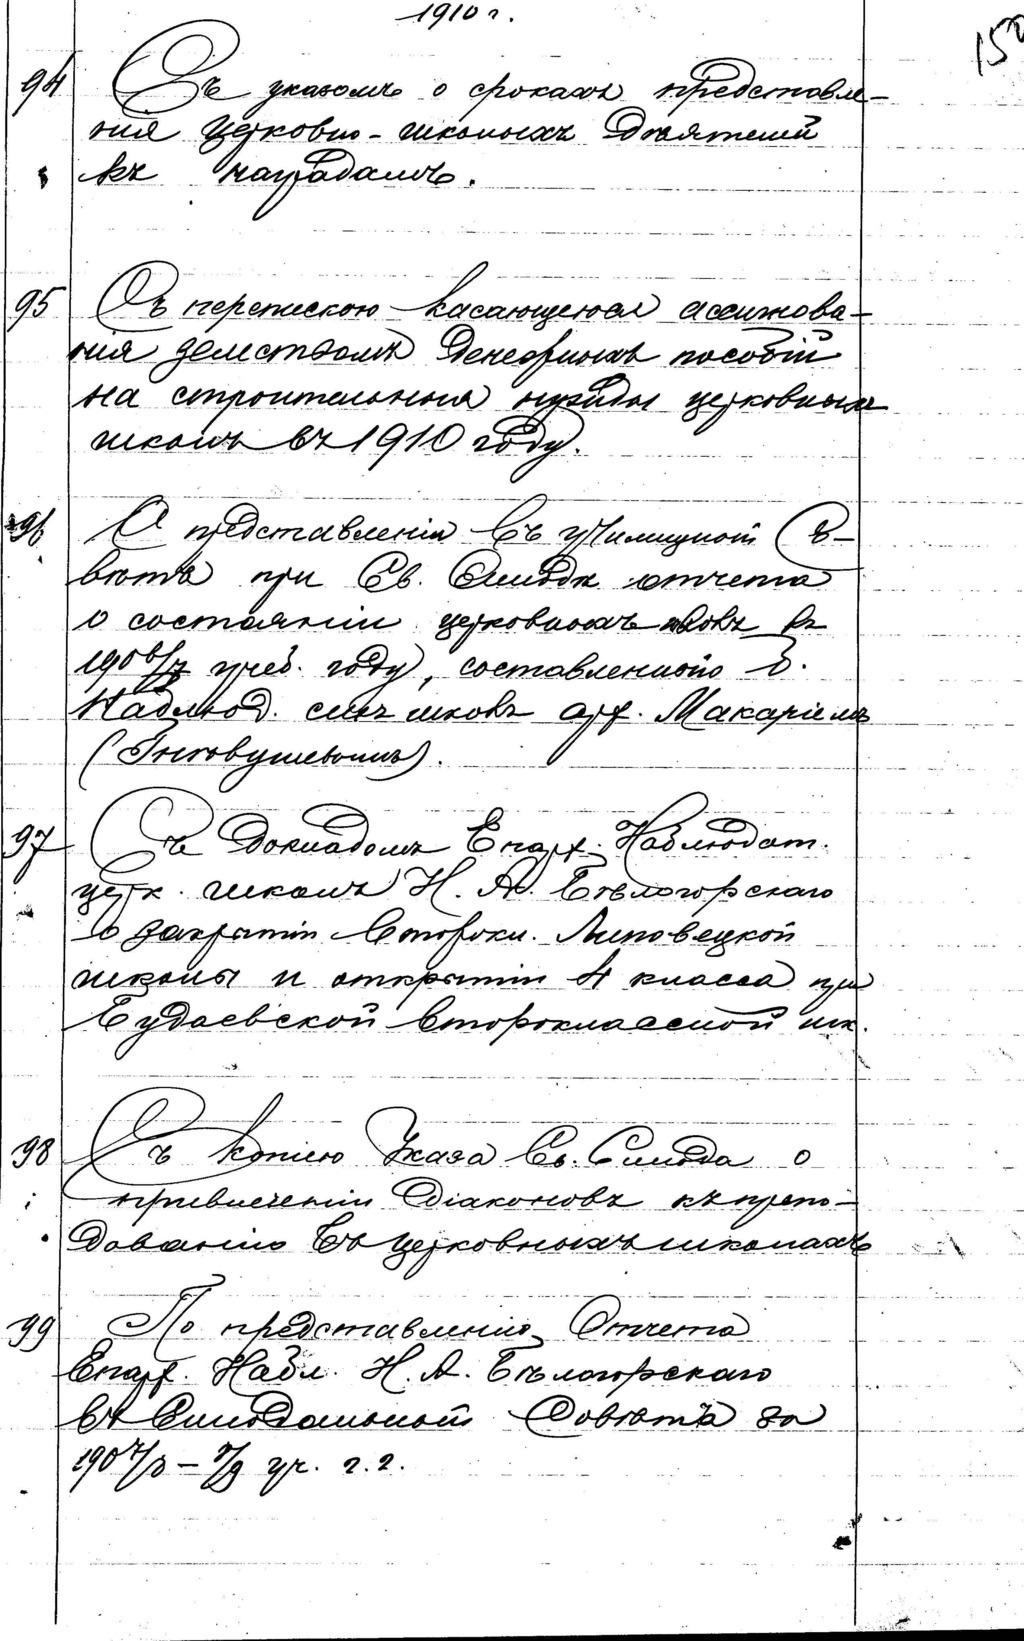 1910 г.
94 Съ указомъ о срокахъ представле-
нія церковно-школьныхъ дѣятелей
къ наградамъ.
95 Съ перепискою касающеюся ассигнова-
нія земствомъ денежныхъ пособій
на строительныя нужды церковныхъ
школъ въ 1910 году.
96 О представленіи въ училищный Со-
вѣтъ при Св. Синодѣ отчета
о состояніи церковныхъ школъ въ
1906/7 учеб. году, составленного Е.
Наблюд. сихъ школъ арх. Макаріемъ
(Гнѣвушевымъ).
97 Съ докладомъ Епарх. Наблюдат.
церк. школъ Н. А. Бѣлогорскаго
о закрытіи второкл. Липовецкой
школы и открытіи 4 класса при
Будаевской второклассной шк.
98 Съ копіею Указа Св. Синода о
привлеченіи діаконовъ къ препо-
даванію въ церковныхъ школахъ
99 По представленію Отчета
Епарх. Набл. Н. А. Бѣлогорскаго
въ Синодальный Совѣтъ за
1907/8 – 8/9 уч. г.г.